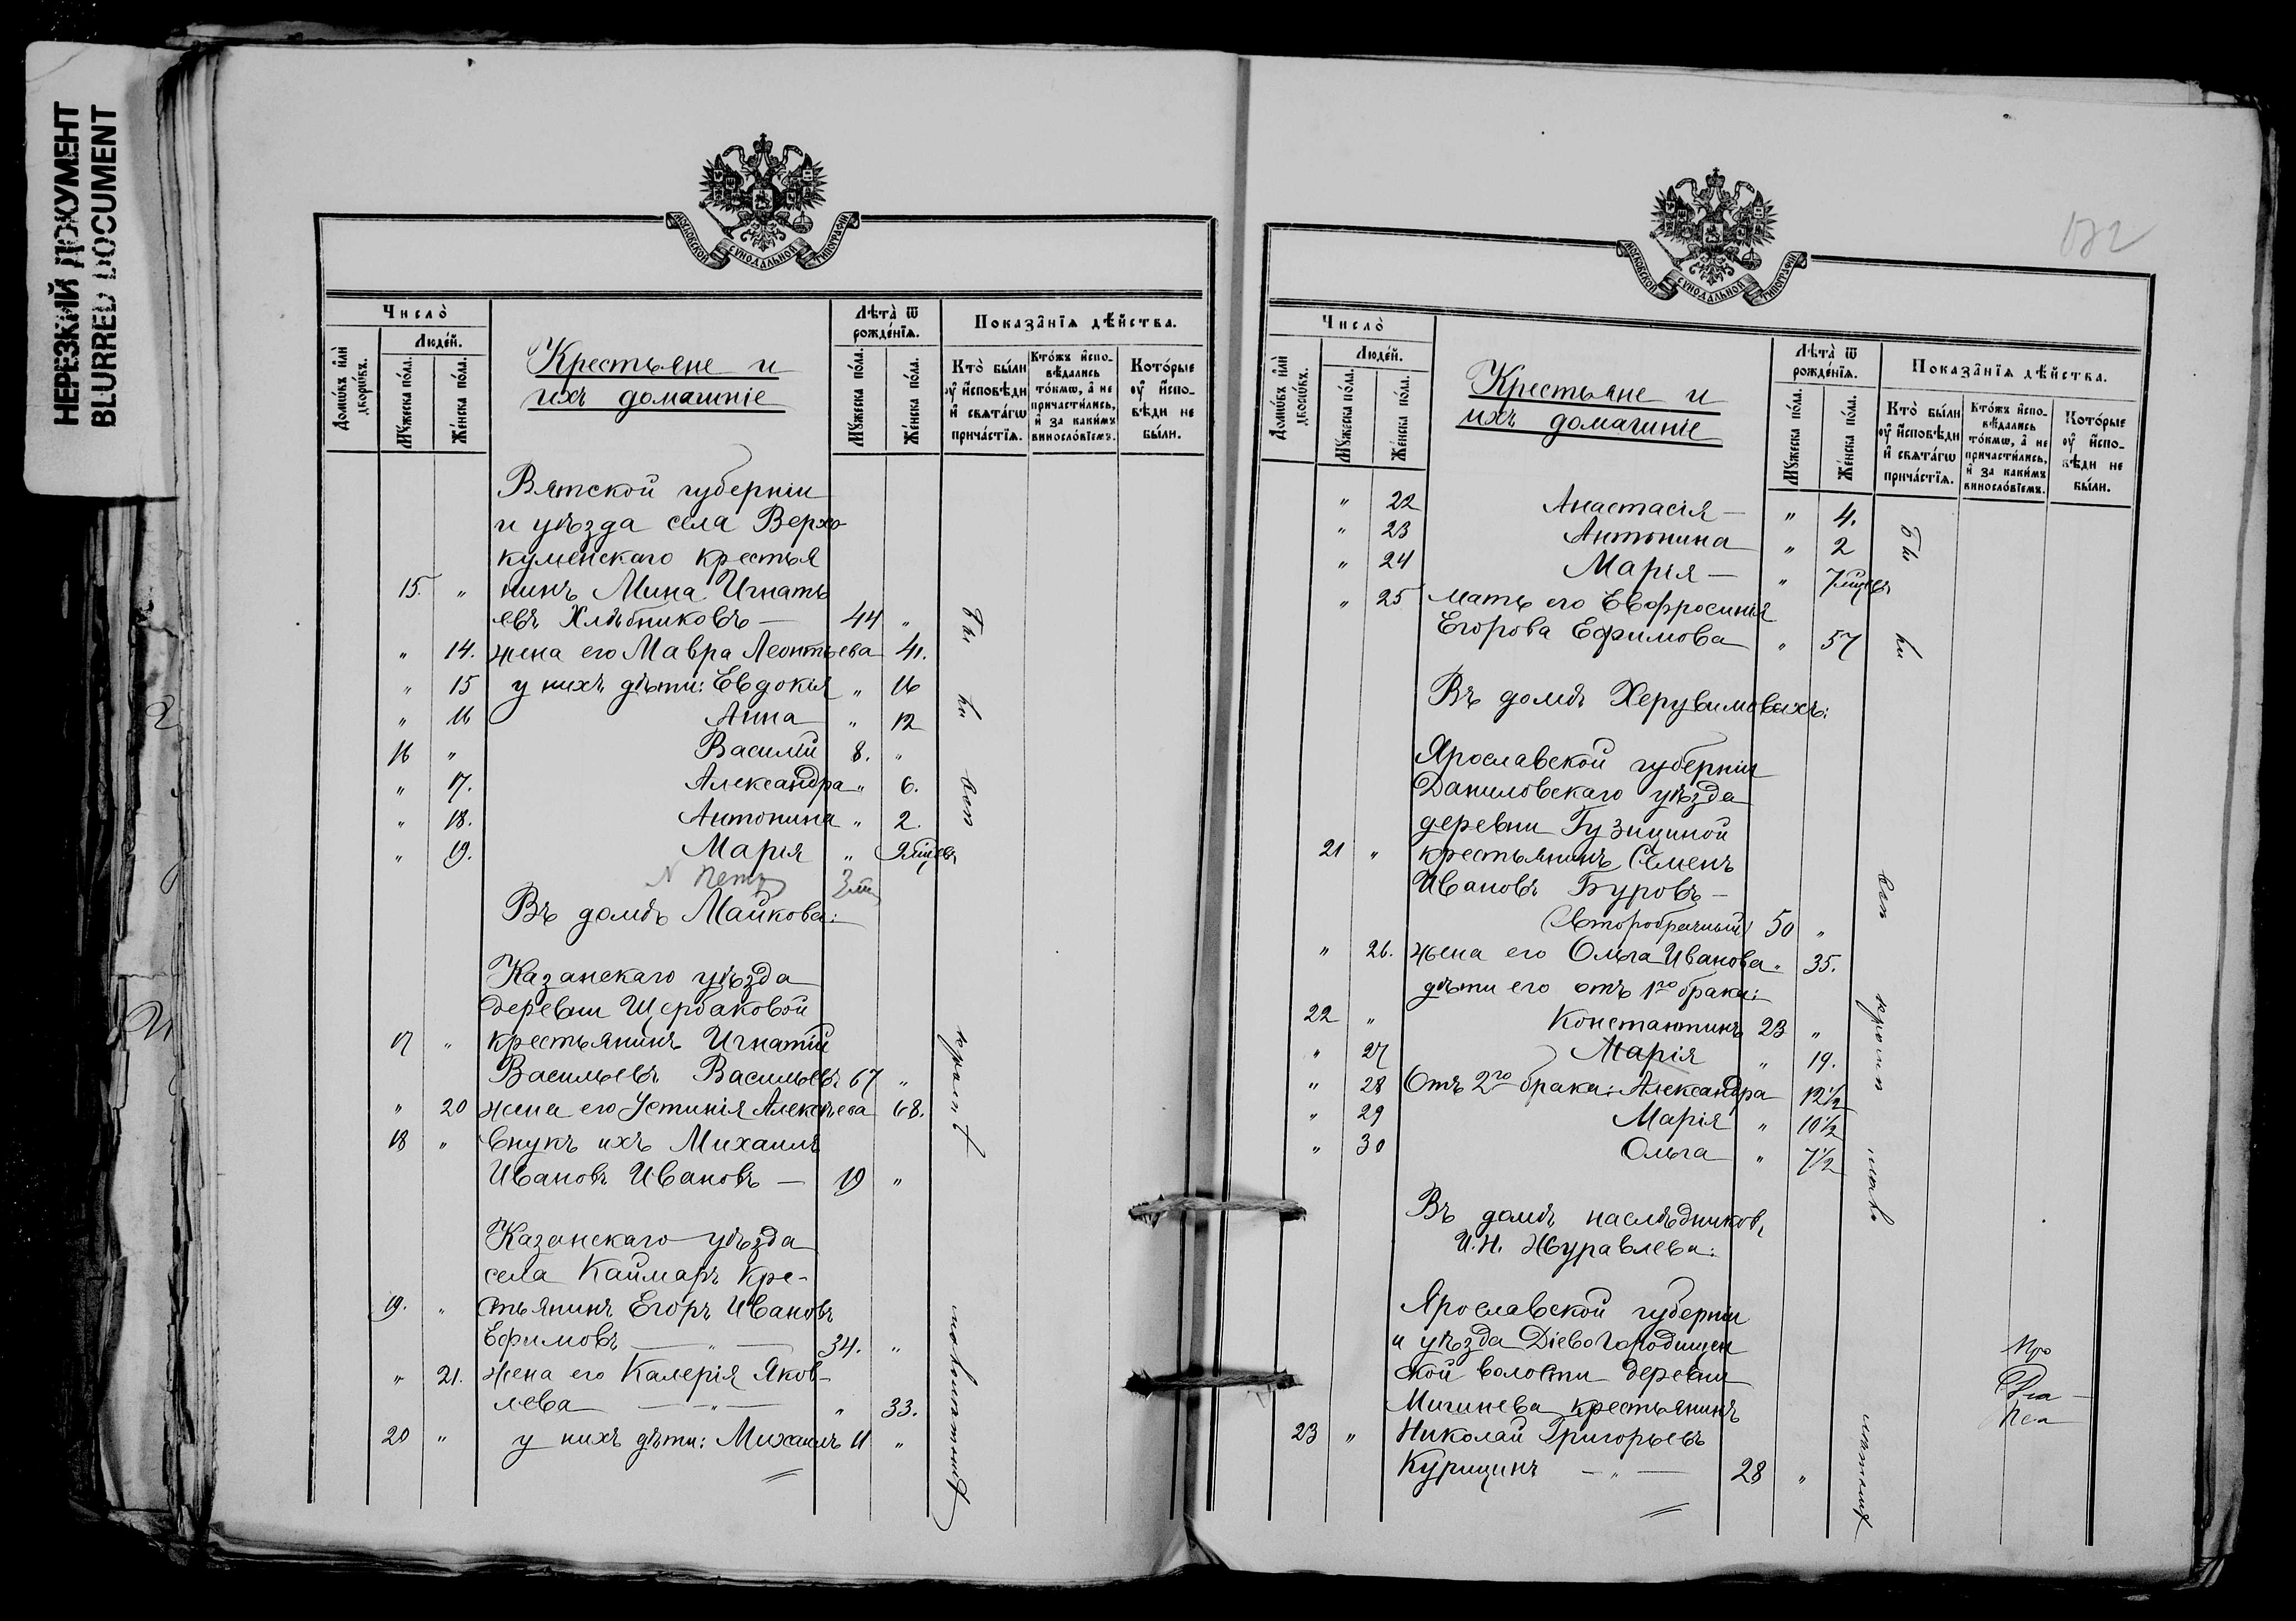 НЕРЕЗКИЙ ДОКУМЕНТ
BLURRED DOCUMENT
МОСКОВСКОЙ СѴНОДАЛЬНОЙ ТИПОГРАФІИ
Число̀
Домѡ́въ и҆лѝ дворѡ́въ.
Люде́й.
Мꙋ́жеска по́ла.
Же́нска по́ла.
Крестьяне и
ихъ домашніе
Лѣта̀ ѿ рожде́нїѧ.
Мꙋ́жеска по́ла.
Же́нска по́ла.
Показа̑нїѧ дѣ́йства.
Кто̀ бы́ли ᲂу҆ и҆сповѣ́ди и҆ свѧта́гѡ прича́стїѧ.
Кто́жъ и҆спо- вѣ́дались то́кмѡ, а҆ не причасти́лись, и҆ за каки́мъ винословїемъ.
Кото́рые ᲂу҆ и҆спо- вѣ́ди не бы́ли.
Вятской губерніи
и уѣзда села Верхо-
куменскаго крестья
15. " нинъ Мина Игнать
евъ Хлѣбниковъ — 44 "
" 14. жена его Мавра Леонтьева 41.
" 15 у нихъ дѣти: Евдокія " 16
" 16 Анна " 12
16 " Василій 8. "
" 17. Александра " 6.
" 18. Антонина " 2.
" 19. Марія "
Въ домѣ Майкова:
Казанскаго уѣзда
деревни Щербаковой
17 " крестьянинъ Игнатій
Васильевъ Васильевъ 67 "
" 20 жена его Устинія Алексѣева 68.
18 " внукъ ихъ Михаилъ
Ивановъ Ивановъ — 19 "
Казанскаго уѣзда
села Каймаръ кре-
19. " стьянинъ Егоръ Ивановъ
Ефимовъ — " — 34. "
" 21. жена его Калерія Яков-
лева — " — " 33.
20 " у нихъ дѣти: Михаилъ 11 "
Бы
ли
вси
кромѣ
малолѣтнихъ
МОСКОВСКОЙ СѴНОДАЛЬНОЙ ТИПОГРАФІИ
Число̀
Домѡ́въ и҆лѝ дворѡ́въ.
Люде́й.
Мꙋ́жеска по́ла.
Же́нска по́ла.
Крестьяне и
ихъ домашніе
Лѣта̀ ѿ рожде́нїѧ.
Мꙋ́жеска по́ла.
Же́нска по́ла.
Показа̑нїѧ дѣ́йства.
Кто̀ бы́ли ᲂу҆ и҆сповѣ́ди и҆ свѧта́гѡ прича́стїѧ.
Кто́жъ и҆спо- вѣ́дались то́кмѡ, а҆ не причасти́лись, и҆ за каки́мъ винословїемъ.
Кото́рые ᲂу҆ и҆спо- вѣ́ди не бы́ли.
" 22 Анастасія — " 4.
" 23 Антонина " 2
" 24 Марія — "
" 25 мать его Евфросинія
Егорова Ефимова " 57
Въ домѣ Херувимовыхъ:
Ярославской губерніи
Даниловскаго уѣзда
деревни Гузициной
21 " крестьянинъ Семенъ
Ивановъ Буровъ —
(второбрачный) 50 "
" 26. жена его Ольга Иванова " 35.
дѣти его отъ 1го брака:
22 " Константинъ 23 "
" 27 Марія " 19.
" 28 Отъ 2го брака: Александра 12½
" 29 Марія " 10½
" 30 Ольга " 7½
Въ домѣ наслѣдниковъ
И.Н. Журавлева:
Ярославской губерніи
и уѣзда Діевогородищен
ской волости деревни
Мигинева крестьянинъ
23 " Николай Григорьевъ
Курицинъ — " — 28 "
Бы
ли
вси